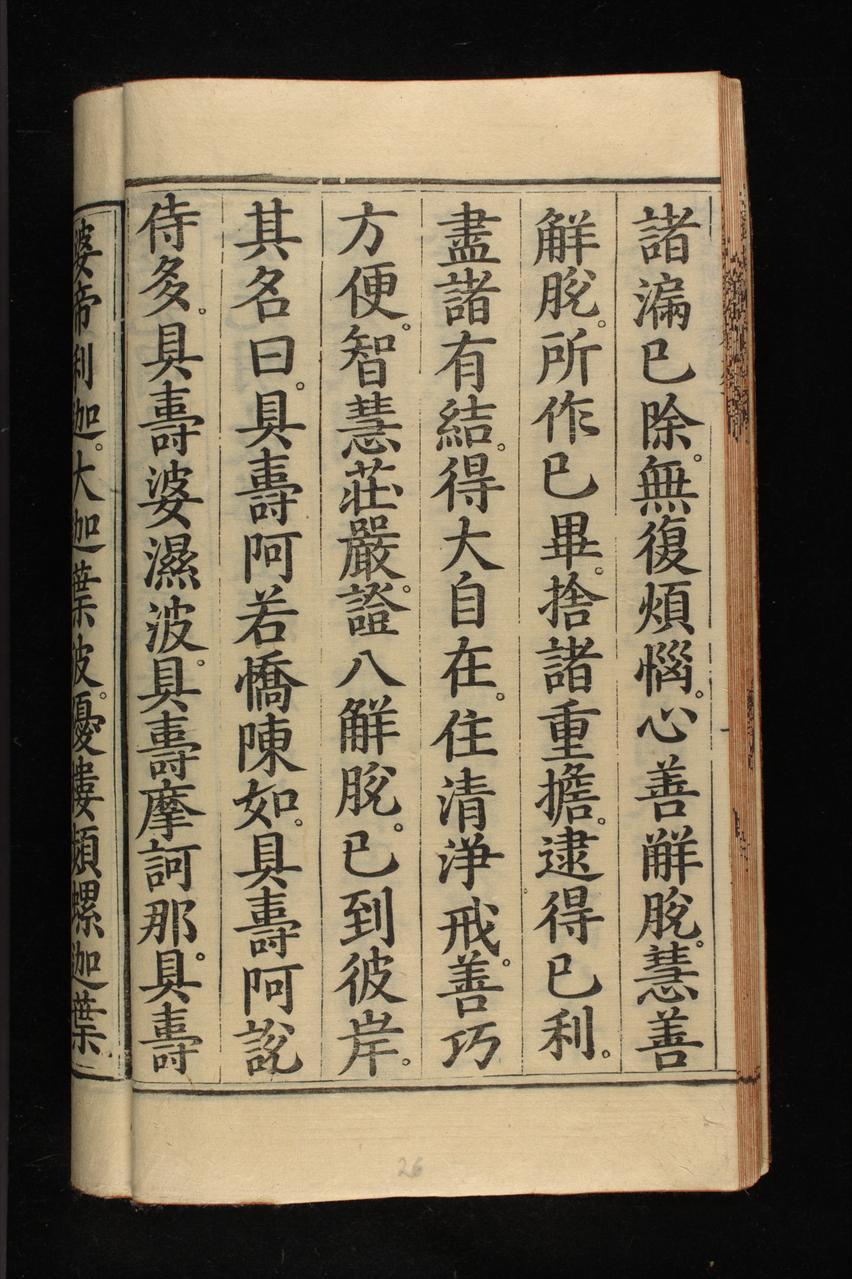 諸漏已除。無復煩惱。心善解脫。慧善
解脫。所作已畢。捨諸重擔。逮得己利。
盡諸有結。得大自在。住清淨戒。善巧
方便。智慧莊嚴。證八解脫。已到彼岸。
其名曰。具壽阿若憍陳如。具壽阿說
侍多。具壽婆濕波。具壽摩訶那。具壽
婆帝利迦。大迦葉波。優婁頻螺迦葉。
26